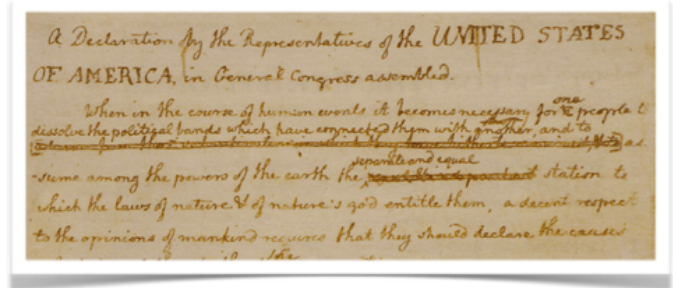 a Declaration by the Representatives of the UNITED STATES
OF AMERICA, in General Congress assembled.
one
When in the course of human events it becomes necessary for people to
dissolve the political bands which have connected them with another, and to
as
separate and equal
-sume among the powers of the earth the station to
which the laws of nature & of nature's god entitle them, a decent respect
to the opinions of mankind requires that they should declare the causes
the